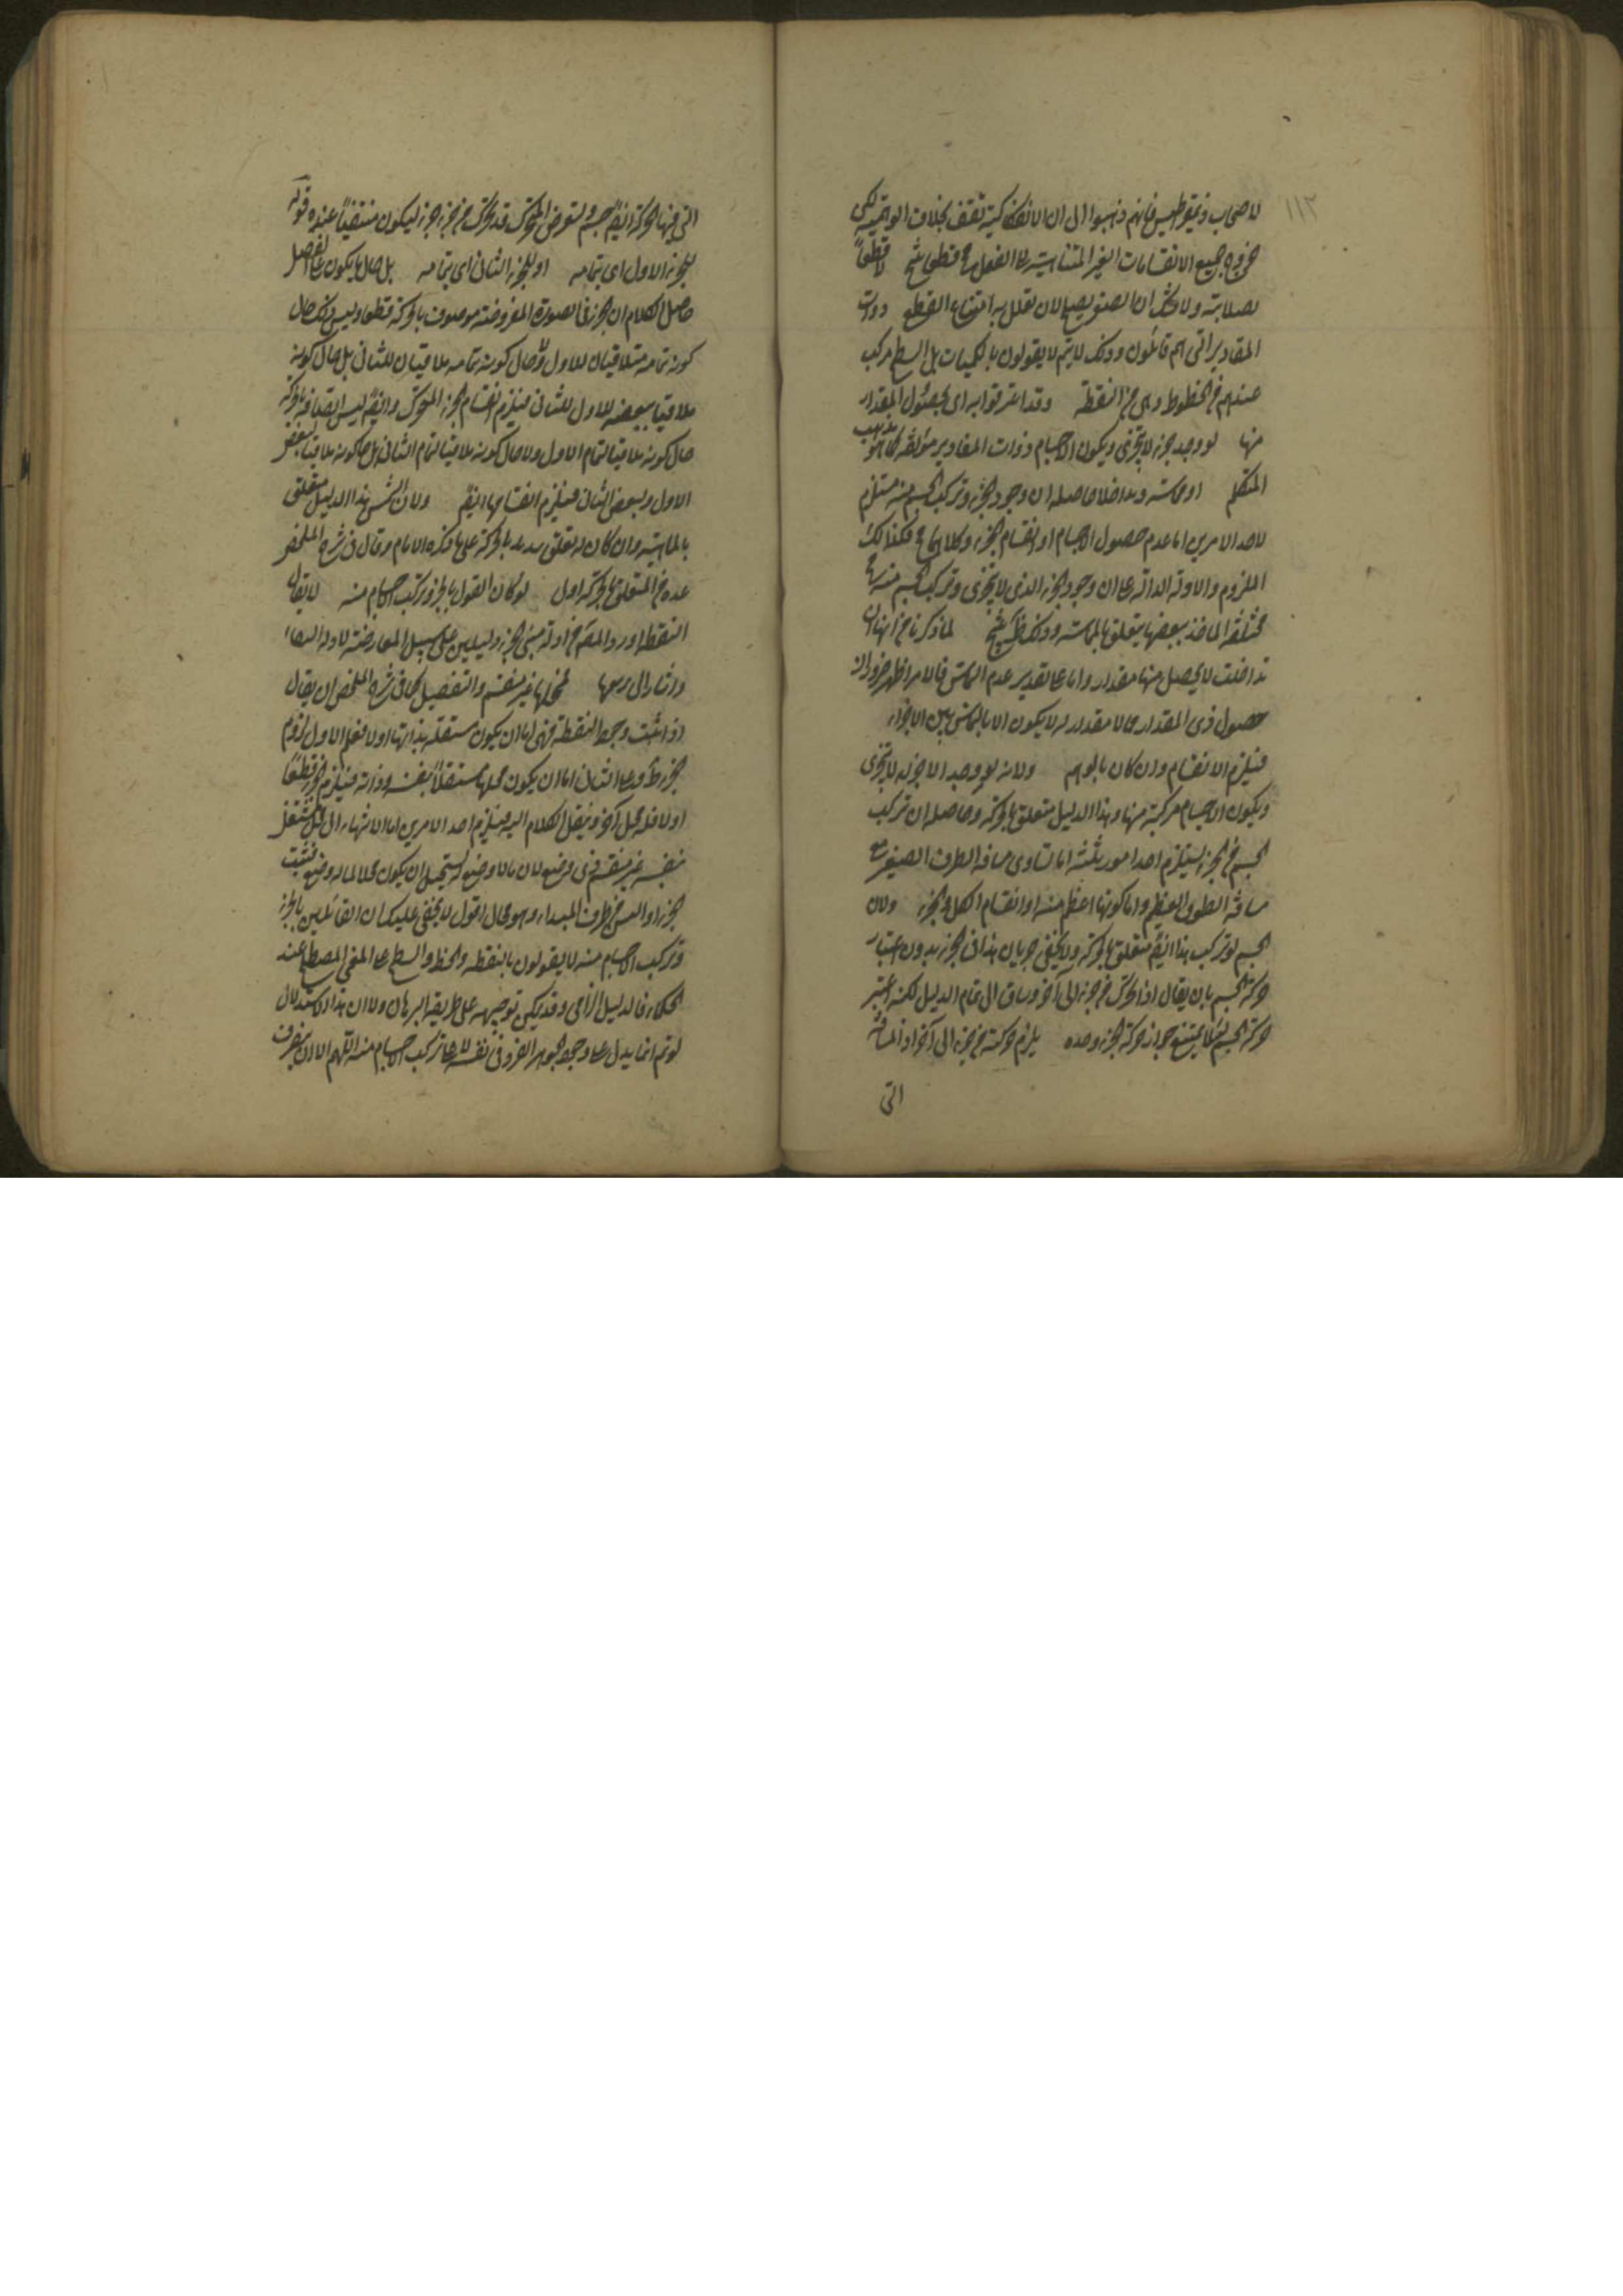 ١١٢
لاصحاب ذيمقراطيس فانهم ذهبوا الى ان الانفكاكية تقف بخلاف الوهمية لكن
خروج جميع الانقسامات الغير المتناهية الى الفعل مح قطعا لا قطعاً
لصلابته ولا شك ان الصغر يصلح لان يعلل به امتناع القطع ذوات
المقادير التى هم قائلون وذلك لا يتم لا يقولون بالكميات بل السطح مركب
عندهم من الخطوط وهى من النقطة وقد اعترفوا به اى بحصول المقدار
منها لو وجد جزء لا يتجزى ويكون الاجسام ذوات المقادير مؤلفة كما هو مذهب
المتكلم او مماسة وتداخلا حاصله ان وجود الجزء وتركب الجسم منه مستلزم
لاحد الامرين اما عدم حصول الاجسام او انقسام الجزء وكلاهما مح فكذلك
الملزوم والادلة الدالة على ان وجود الجزء الذى لا يتجزى وتركب الجسم منه مح
مختلفة المأخذ بعضها يتعلق بالمماسة وذلك لما ذكرنا من انها ان
تداخلت لا يحصل منها مقدار واما على تقدير عدم التماس فالامر اظهر ضرورة ان
حصول ذى المقدار مما لا مقدار له لا يكون الا بالتماس بين الاجزاء
فيلزم الانقسام وان كان بالوهم ولانه لو وجد الاجزاء لا يتجزى
ويكون الاجسام مركبة منها وهذا الدليل متعلق بالحركة وحاصله ان تركب
الجسم من الجزء يستلزم احد امور ثلثة اما تساوى مسافة الطرف الصغير مع
مسافة الطوق العظيم واما كونها اعظم منه او انقسام الكل والجزء ولان
الجسم لو تركب هذا ايضا متعلق بالحركة ولا يخفى جريان هذا فى الجزء بدون اعتبار
حركة الجسم بان يقال اذا تحرك من جزء الى آخر وساق الى تمام الدليل لكنه اعتبر
حركة الجسم لئلا يمتنع جواز حركة الجزء وحده يلزم حركته من جزء الى آخر اذ المسافة
التى
التى فيها الحركة ايضا جسم ولتعرض المتحرك قد تحرك من جزء الى جزء ليكون منتفياً عنده قوله
للجزء الاول اى بتمامه او للجزء الثانى اى بتمامه بل حال ما يكون على الفصل
حاصل الكلام ان الجزء فى الصورة المفروضة موصوف بالحركة قطعا وليس ذلك حال
كونه بتمامه ملاقيا للاول ولا حال كونه بتمامه ملاقيا للثانى بل حال كونه
ملاقيا ببعضه للاول للثانى فيلزم انقسام الجزء المتحرك وايضا ليس اتصافه بالحركة
حال كونه ملاقيا لتمام الاول ولا حال كونه ملاقيا لتمام الثانى بل حال كونه ملاقيا لبعض
الاول وبعض الثانى فيلزم انقسامها ايضا ولان الشمس هذا الدليل متعلق
بالمماسة وان كان له تعلق بالحركة على ما ذكره الامام وقال فى شرح الملخص
عده من المتعلق بالحركة اولى لو كان القول بالجزء وتركب الاجسام منه لا يقال
النقطة اورد المص من ادلة مثبتى الجزء دليلين على سبيل المعارضة لادلة النفاة
واشار الى ردها فمحلها غير منقسم والتفصيل كما فى شرح الملخص ان يقال
اذا ثبت وجود النقطة فهى اما ان يكون مستقلة بذاتها اولا فعلى الاول لزوم
الجزء ظ وعلى الثانى اما ان يكون محلها مستقلاً بنفسه وذاته فيلزم الجزء قطعاً
اولا فله محل آخر وينقل الكلام اليه فيلزم احد الامرين اما الانتهاء الى محل مستقل
بنفسه غير منقسم ذى وضع لان ما لا وضع له يستحيل ان يكون محلا لما له وضع فيثبت
الجزء او التس من طرف المبداء وهو محال اقول لا يخفى عليك ان القائلين بالجزء
وتركب الاجسام منه لا يقولون بالنقطة والخط والسطح على المعنى المصطلح عند
الحكماء فالدليل الزامى وقد يمكن توجيهه على طريقة البرهان ولان هذا الاستدلال
لو تم انما يدل على وجود الجوهر الفرد فى نفسه لا على تركب الاجسام منه اللهم الا ان يصرف